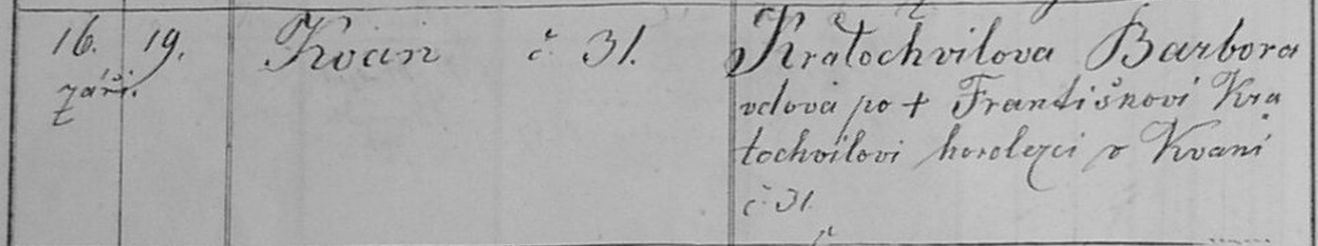 16. 19. Kváň č. 31. Kratochvilova Barbora
září. vdova po † Františkovi Kra
tochvilovi horolezci v Kvani
č 31.